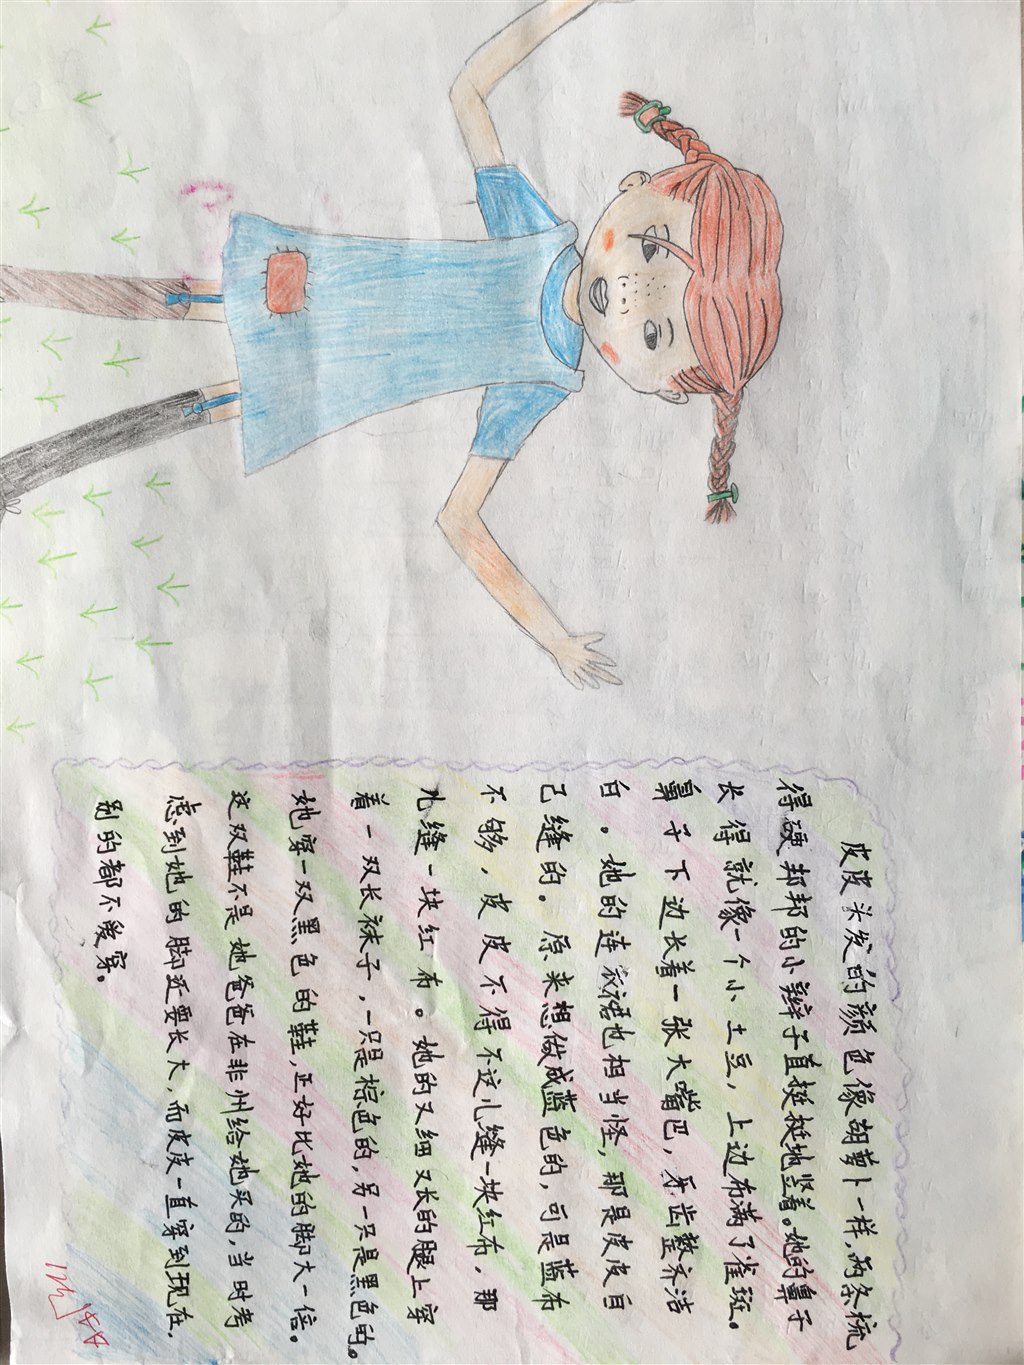 皮皮头发的颜色像胡萝卜一样，两条梳
得硬邦邦的小辫子直挺挺地竖着。她的鼻子
长得就像一个小土豆，上边布满了雀斑。
鼻子下边长着一张大嘴巴，牙齿整齐洁
白。她的连衣裙也相当怪，那是皮皮自
己缝的。原来想做成蓝色的，可是蓝布
不够，皮皮不得不这儿缝一块红布，那
儿缝一块红布。她的又细又长的腿上穿
着一双长袜子，一只是棕色的，另一只是黑色的。
她穿一双黑色的鞋，正好比她的脚大一倍。
这双鞋不是她爸爸在非州给她买的，当时考
虑到她的脚还要长大，而皮皮一直穿到现在，
别的都不爱穿。